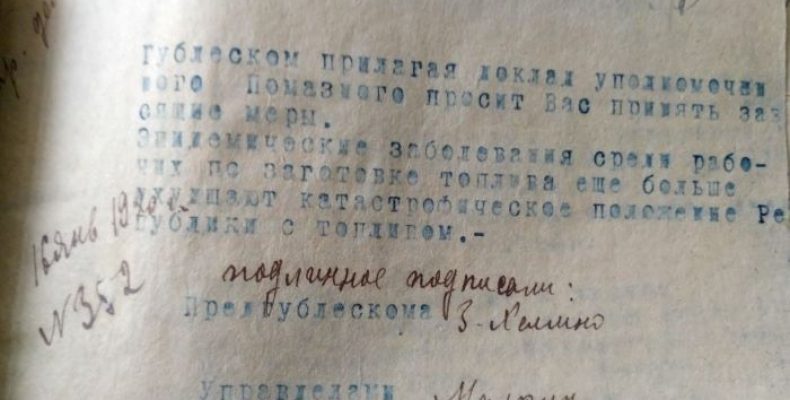 Гублеском прилагая доклад уполномочен
ного Помазного просит Вас принять зав
сящие меры.
Эпидемические заболевания среди рабо-
чих по заготовке топлива еще больше
ухудшают катастрофическое положение Ре
публики с топливом.-
16 янв 1920 г.
№ 352
подлинное подписали:
Предгублескома
Управделами